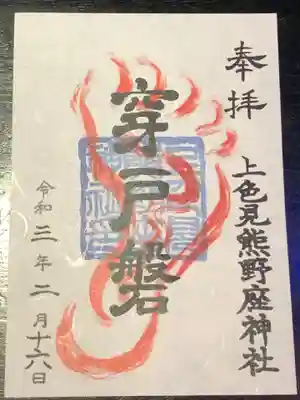 奉拝
上色見熊野座神社
穿戸磐
令和三年二月十六日